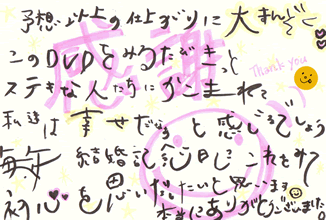 予想以上の仕上がりに大まんぞく
このDVDをみるたびきっと
ステキな人たちにかこまれて
Thank you
感謝
私達は幸せだなぁと感じるでしょう
毎年結婚記念日にこれをみて
初心を思いだしたいと思います
本当にありがとうございました